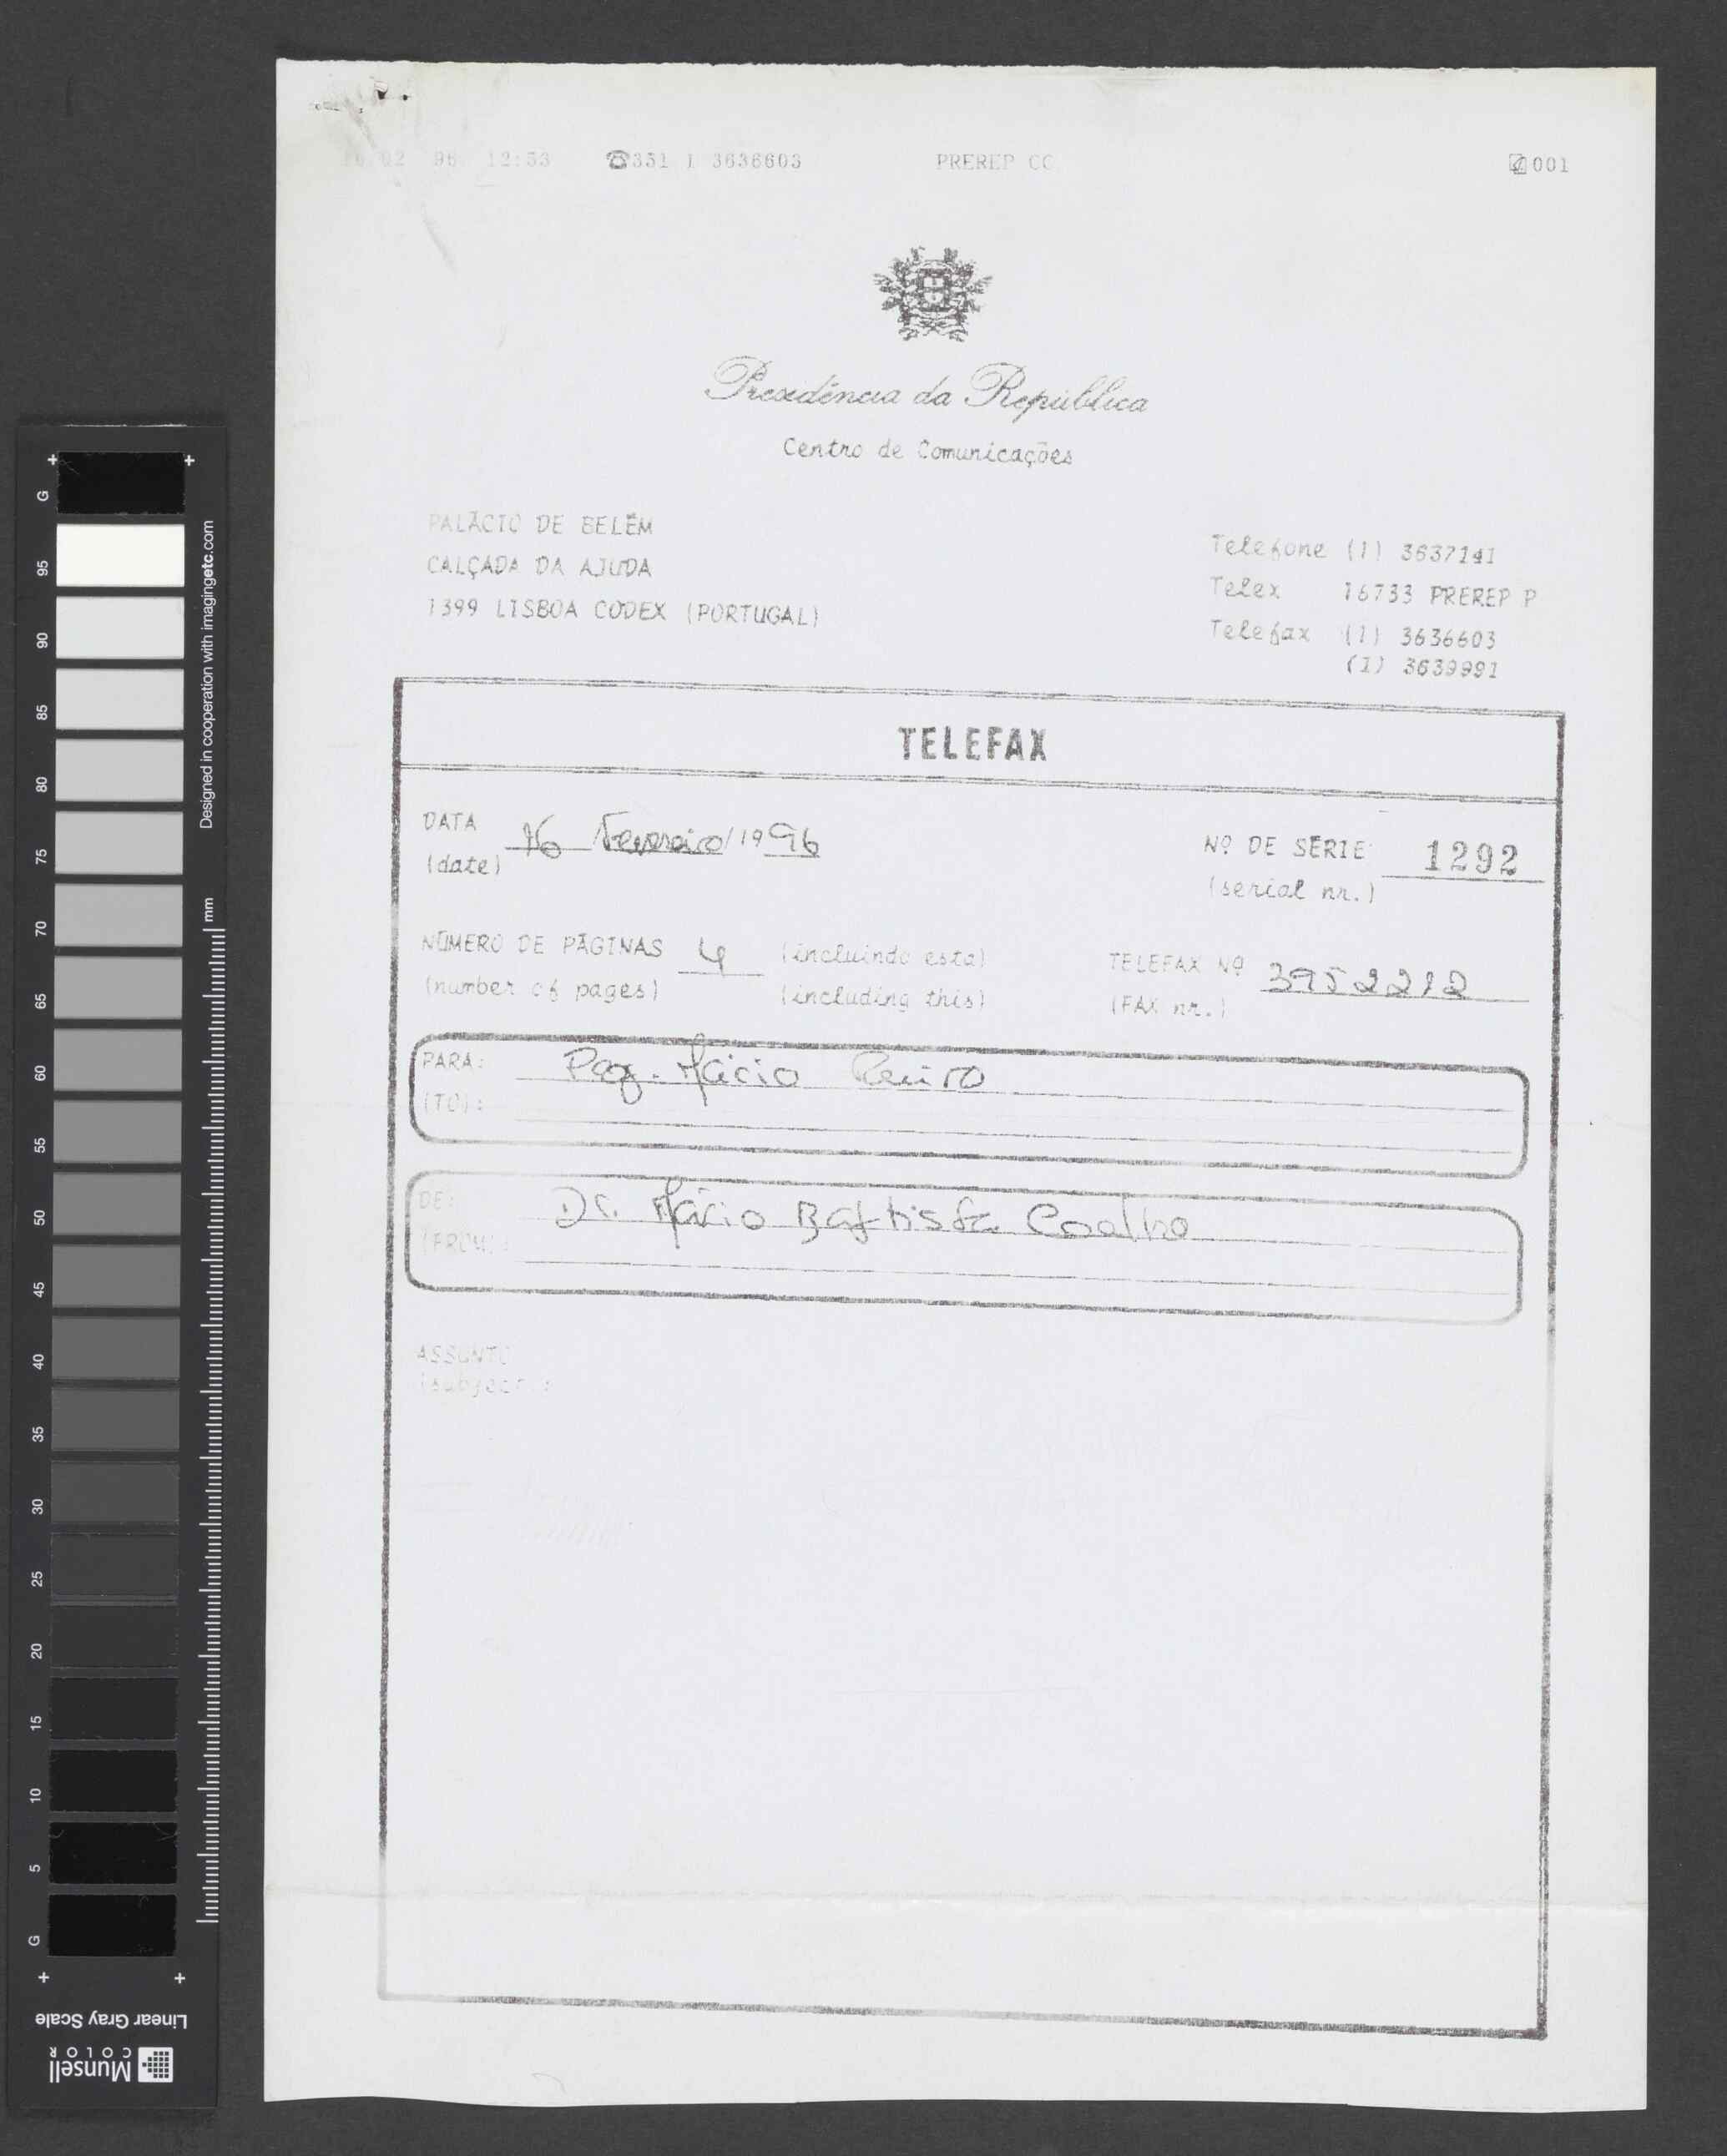 96 12:53 ☎351 1 3636603 PREREP CC 001
Presidência da República
Centro de Comunicações
PALÁCIO DE BELÉM
CALÇADA DA AJUDA
1399 LISBOA CODEX (PORTUGAL)
Telefone (1) 3637141
Telex 16733 PREREP P
Telefax (1) 3636603
(1) 3639991
TELEFAX
DATA 16 Fevereiro/1996
(date)
Nº DE SÉRIE 1292
(serial nr.)
NÚMERO DE PÁGINAS 4 (incluindo esta)
(number of pages) (including this)
TELEFAX Nº 3952212
(FAX nr.)
PARA: Mário
(TO):
DE: Dr. Mário Baptista Coelho
(FROM):
ASSUNTO
(subject):
G 95 90 85 80 75 70 65 60 55 50 45 40 35 30 25 20 15 10 5 G
Designed in cooperation with imagingetc.com
mm
Linear Gray Scale
Munsell
COLOR